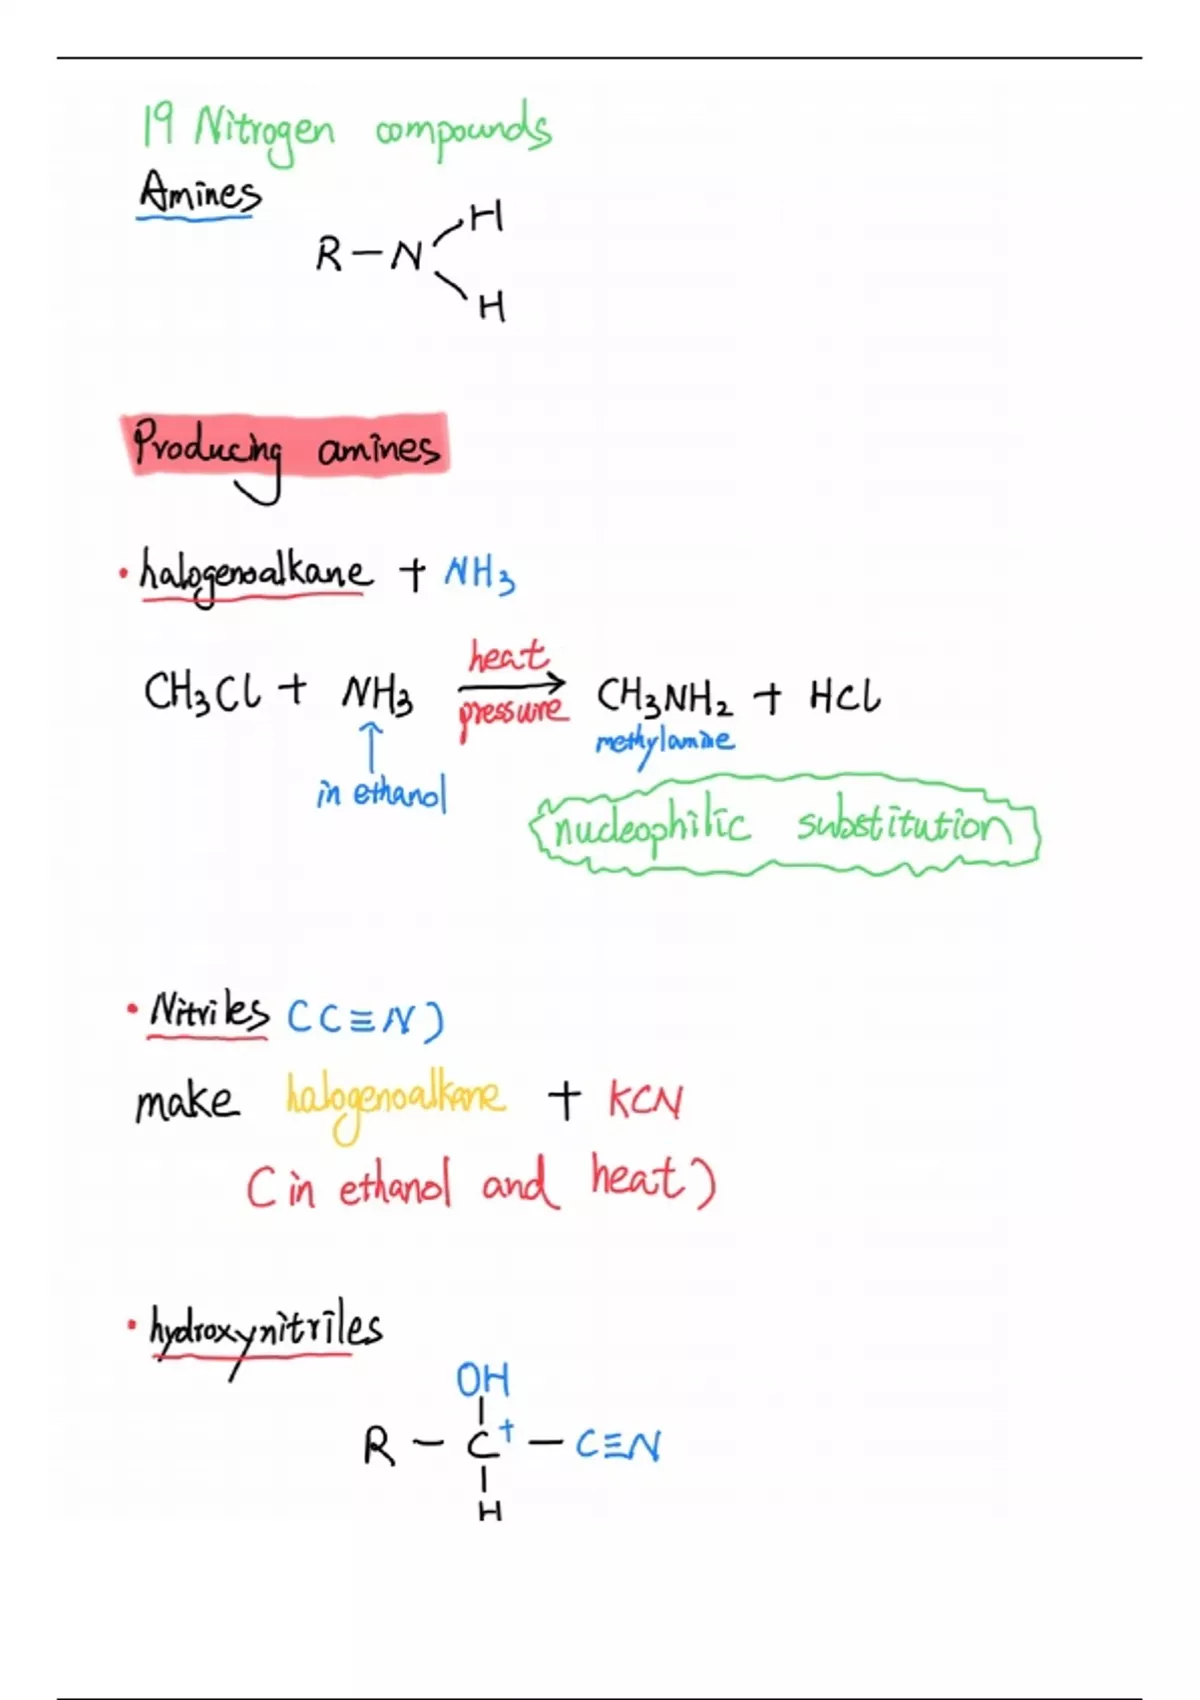 19 Nitrogen compounds
Amines
R-N
H
H
Producing amines
• halogenoalkane + NH3
heat
CH3Cl + NH3 → CH3NH2 + HCl
pressure
methylamine
in ethanol
nucleophilic substitution
• Nitriles (C≡N)
make halogenoalkane + KCN
(in ethanol and heat)
• hydroxynitriles
OH
R - C+ - C≡N
H